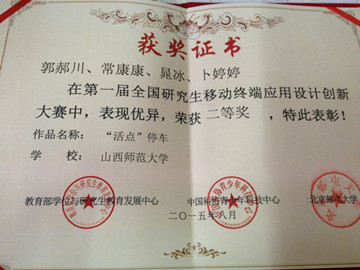 获奖证书
郭郝川、常康康、晁冰、卜婷婷
在第一届全国研究生移动终端应用设计创新
大赛中，表现优异，荣获 二等奖 ，特此表彰！
作品名称： “活点”停车
学 校： 山西师范大学
教育部学位与研究生教育发展中心 中国科协青少年科技中心 北京邮电大学
二〇一五年八月